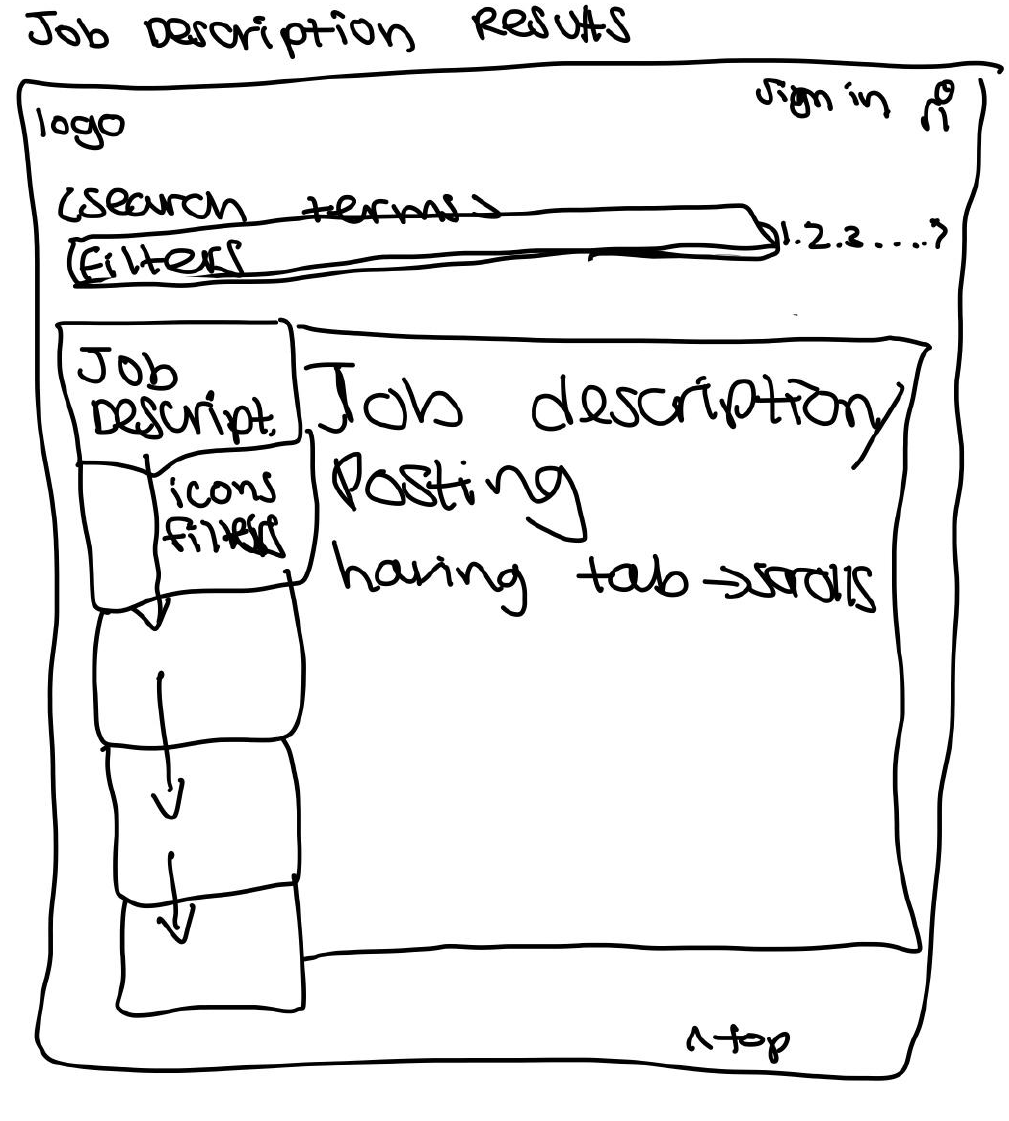 Job Description Results
sign in
logo
<search terms>
Filters
1.2.3....>
Job
Descript.
icons
filters
Job description/
Posting
having tab → scrolls
^ top